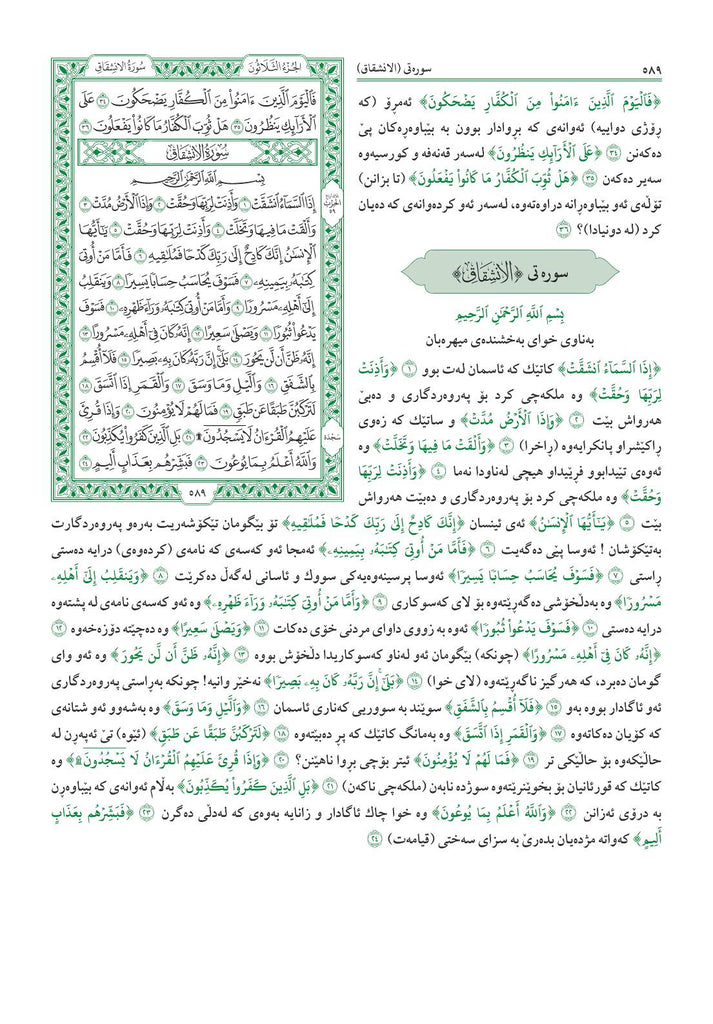 ٥٨٩
سورەتی (الانشقاق)
﴿فَٱلۡيَوۡمَ ٱلَّذِينَ ءَامَنُواْ مِنَ ٱلۡكُفَّارِ يَضۡحَكُونَ﴾ ئەمڕۆ (کە
ڕۆژی دواییە) ئەوانەی کە بڕوادار بوون بە بێباوەڕەکان پێ
دەکەنن ٣٤ ﴿عَلَى ٱلۡأَرَآئِكِ يَنظُرُونَ﴾ لەسەر قەنەفە و کورسیەوە
سەیر دەکەن ٣٥ ﴿هَلۡ ثُوِّبَ ٱلۡكُفَّارُ مَا كَانُواْ يَفۡعَلُونَ﴾ (تا بزانن)
تۆڵەی ئەو بێباوەڕانە دراوەتەوە، لەسەر ئەو کردەوانەی کە دەیان
کرد (لە دونیادا)؟ ٣٦
سورەتی ﴿الانشقاق﴾
بِسْمِ ٱللَّهِ ٱلرَّحْمَٰنِ ٱلرَّحِيمِ
بەناوی خوای بەخشندەی میهرەبان
﴿إِذَا ٱلسَّمَآءُ ٱنشَقَّتۡ﴾ کاتێك کە ئاسمان لەت بوو ١ ﴿وَأَذِنَتۡ
لِرَبِّهَا وَحُقَّتۡ﴾ وە ملکەچی کرد بۆ پەروەردگاری و دەبێ
هەرواش بێت ٢ ﴿وَإِذَا ٱلۡأَرۡضُ مُدَّتۡ﴾ و ساتێك کە زەوی
ڕاکێشراو پانکرایەوە (ڕاخرا) ٣ ﴿وَأَلۡقَتۡ مَا فِيهَا وَتَخَلَّتۡ﴾ وە
ئەوەی تێیدابوو فڕێیداو هیچی لەناودا نەما ٤ ﴿وَأَذِنَتۡ لِرَبِّهَا
وَحُقَّتۡ﴾ وە ملکەچی کرد بۆ پەروەردگاری و دەبێت هەرواش
بێت ٥ ﴿يَٰٓأَيُّهَا ٱلۡإِنسَٰنُ﴾ ئەی ئینسان ﴿إِنَّكَ كَادِحٌ إِلَىٰ رَبِّكَ كَدۡحًا فَمُلَٰقِيهِ﴾ تۆ بێگومان تێکۆشەریت بەرەو پەروەردگارت
بەتێکۆشان ! ئەوسا پێی دەگەیت ٦ ﴿فَأَمَّا مَنۡ أُوتِيَ كِتَٰبَهُۥ بِيَمِينِهِۦ﴾ ئەمجا ئەو کەسەی کە نامەی (کردەوەی) درایە دەستی
ڕاستی ٧ ﴿فَسَوۡفَ يُحَاسَبُ حِسَابٗا يَسِيرٗا﴾ ئەوسا پرسینەوەیەکی سووك و ئاسانی لەگەڵ دەکرێت ٨ ﴿وَيَنقَلِبُ إِلَىٰٓ أَهۡلِهِۦ
مَسۡرُورٗا﴾ وە بەدڵخۆشی دەگەڕێتەوە بۆ لای کەسوکاری ٩ ﴿وَأَمَّا مَنۡ أُوتِيَ كِتَٰبَهُۥ وَرَآءَ ظَهۡرِهِۦ﴾ وە ئەو کەسەی نامەی لە پشتەوە
درایە دەستی ١٠ ﴿فَسَوۡفَ يَدۡعُواْ ثُبُورٗا﴾ ئەوە بە زووی داوای مردنی خۆی دەکات ١١ ﴿وَيَصۡلَىٰ سَعِيرًا﴾ وە دەچێتە دۆزەخەوە ١٢
﴿إِنَّهُۥ كَانَ فِيٓ أَهۡلِهِۦ مَسۡرُورًا﴾ (چونکە) بێگومان ئەو لەناو کەسوکاریدا دڵخۆش بووە ١٣ ﴿إِنَّهُۥ ظَنَّ أَن لَّن يَحُورَ﴾ وە ئەو وای
گومان دەبرد، کە هەرگیز ناگەڕێتەوە (لای خوا) ١٤ ﴿بَلَىٰٓۚ إِنَّ رَبَّهُۥ كَانَ بِهِۦ بَصِيرٗا﴾ نەخێر وانیە! چونکە بەڕاستی پەروەردگاری
ئەو ئاگادار بووە بەو ١٥ ﴿فَلَآ أُقۡسِمُ بِٱلشَّفَقِ﴾ سوێند بە سووریی کەناری ئاسمان ١٦ ﴿وَٱلَّيۡلِ وَمَا وَسَقَ﴾ وە بەشەوو ئەو شتانەی
کە کۆیان دەکاتەوە ١٧ ﴿وَٱلۡقَمَرِ إِذَا ٱتَّسَقَ﴾ وە بەمانگ کاتێك کە پڕ دەبێتەوە ١٨ ﴿لَتَرۡكَبُنَّ طَبَقًا عَن طَبَقٖ﴾ (ئێوە) تێ ئەپەڕن لە
حاڵێکەوە بۆ حاڵێکی تر ١٩ ﴿فَمَا لَهُمۡ لَا يُؤۡمِنُونَ﴾ ئیتر بۆچی بڕوا ناهێنن؟ ٢٠ ﴿وَإِذَا قُرِئَ عَلَيۡهِمُ ٱلۡقُرۡءَانُ لَا يَسۡجُدُونَۤ۩﴾ وە
کاتێك کە قورئانیان بۆ بخوێنرێتەوە سوژدە نابەن (ملکەچی ناکەن) ٢١ ﴿بَلِ ٱلَّذِينَ كَفَرُواْ يُكَذِّبُونَ﴾ بەڵام ئەوانەی کە بێباوەڕن
بە درۆی ئەزانن ٢٢ ﴿وَٱللَّهُ أَعۡلَمُ بِمَا يُوعُونَ﴾ وە خوا چاك ئاگادار و زانایە بەوەی کە لەدڵی دەگرن ٢٣ ﴿فَبَشِّرۡهُم بِعَذَابٍ
أَلِيمٍ﴾ کەواتە مژدەیان بدەرێ بە سزای سەختی (قیامەت) ٢٤
الجُزْءُ الثَّلَاثُونَ
سُورَةُ الانشِقَاقِ
فَٱلۡيَوۡمَ ٱلَّذِينَ ءَامَنُواْ مِنَ ٱلۡكُفَّارِ يَضۡحَكُونَ ٣٤ عَلَى
ٱلۡأَرَآئِكِ يَنظُرُونَ ٣٥ هَلۡ ثُوِّبَ ٱلۡكُفَّارُ مَا كَانُواْ يَفۡعَلُونَ ٣٦
سُورَةُ الانشِقَاقِ
بِسْمِ ٱللَّهِ ٱلرَّحْمَٰنِ ٱلرَّحِيمِ
إِذَا ٱلسَّمَآءُ ٱنشَقَّتۡ ١ وَأَذِنَتۡ لِرَبِّهَا وَحُقَّتۡ ٢ وَإِذَا ٱلۡأَرۡضُ مُدَّتۡ ٣
وَأَلۡقَتۡ مَا فِيهَا وَتَخَلَّتۡ ٤ وَأَذِنَتۡ لِرَبِّهَا وَحُقَّتۡ ٥ يَٰٓأَيُّهَا
ٱلۡإِنسَٰنُ إِنَّكَ كَادِحٌ إِلَىٰ رَبِّكَ كَدۡحٗا فَمُلَٰقِيهِ ٦ فَأَمَّا مَنۡ أُوتِيَ
كِتَٰبَهُۥ بِيَمِينِهِۦ ٧ فَسَوۡفَ يُحَاسَبُ حِسَابٗا يَسِيرٗا ٨ وَيَنقَلِبُ
إِلَىٰٓ أَهۡلِهِۦ مَسۡرُورٗا ٩ وَأَمَّا مَنۡ أُوتِيَ كِتَٰبَهُۥ وَرَآءَ ظَهۡرِهِۦ ١٠ فَسَوۡفَ
يَدۡعُواْ ثُبُورٗا ١١ وَيَصۡلَىٰ سَعِيرًا ١٢ إِنَّهُۥ كَانَ فِيٓ أَهۡلِهِۦ مَسۡرُورًا ١٣
إِنَّهُۥ ظَنَّ أَن لَّن يَحُورَ ١٤ بَلَىٰٓۚ إِنَّ رَبَّهُۥ كَانَ بِهِۦ بَصِيرٗا ١٥ فَلَآ أُقۡسِمُ
بِٱلشَّفَقِ ١٦ وَٱلَّيۡلِ وَمَا وَسَقَ ١٧ وَٱلۡقَمَرِ إِذَا ٱتَّسَقَ ١٨
لَتَرۡكَبُنَّ طَبَقًا عَن طَبَقٖ ١٩ فَمَا لَهُمۡ لَا يُؤۡمِنُونَ ٢٠ وَإِذَا قُرِئَ
عَلَيۡهِمُ ٱلۡقُرۡءَانُ لَا يَسۡجُدُونَۤ۩ ٢١ بَلِ ٱلَّذِينَ كَفَرُواْ يُكَذِّبُونَ ٢٢
وَٱللَّهُ أَعۡلَمُ بِمَا يُوعُونَ ٢٣ فَبَشِّرۡهُم بِعَذَابٍ أَلِيمٍ ٢٤
سَجْدَة
٥٨٩